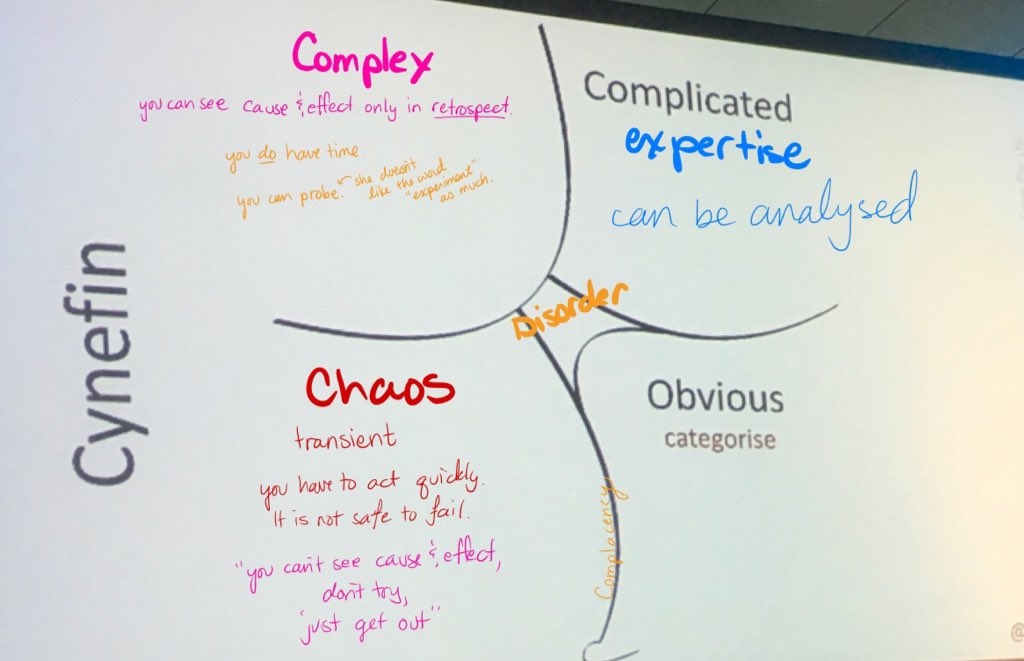 Cynefin
Complex
you can see cause & effect only in retrospect.
you do have time.
you can probe. ← she doesn't
like the word
"experiment"
as much.
Complicated
expertise
can be analysed
Disorder
Chaos
transient
you have to act quickly.
It is not safe to fail.
"you can't see cause & effect,
don't try,
just get out"
Obvious
categorise
Complacency
@